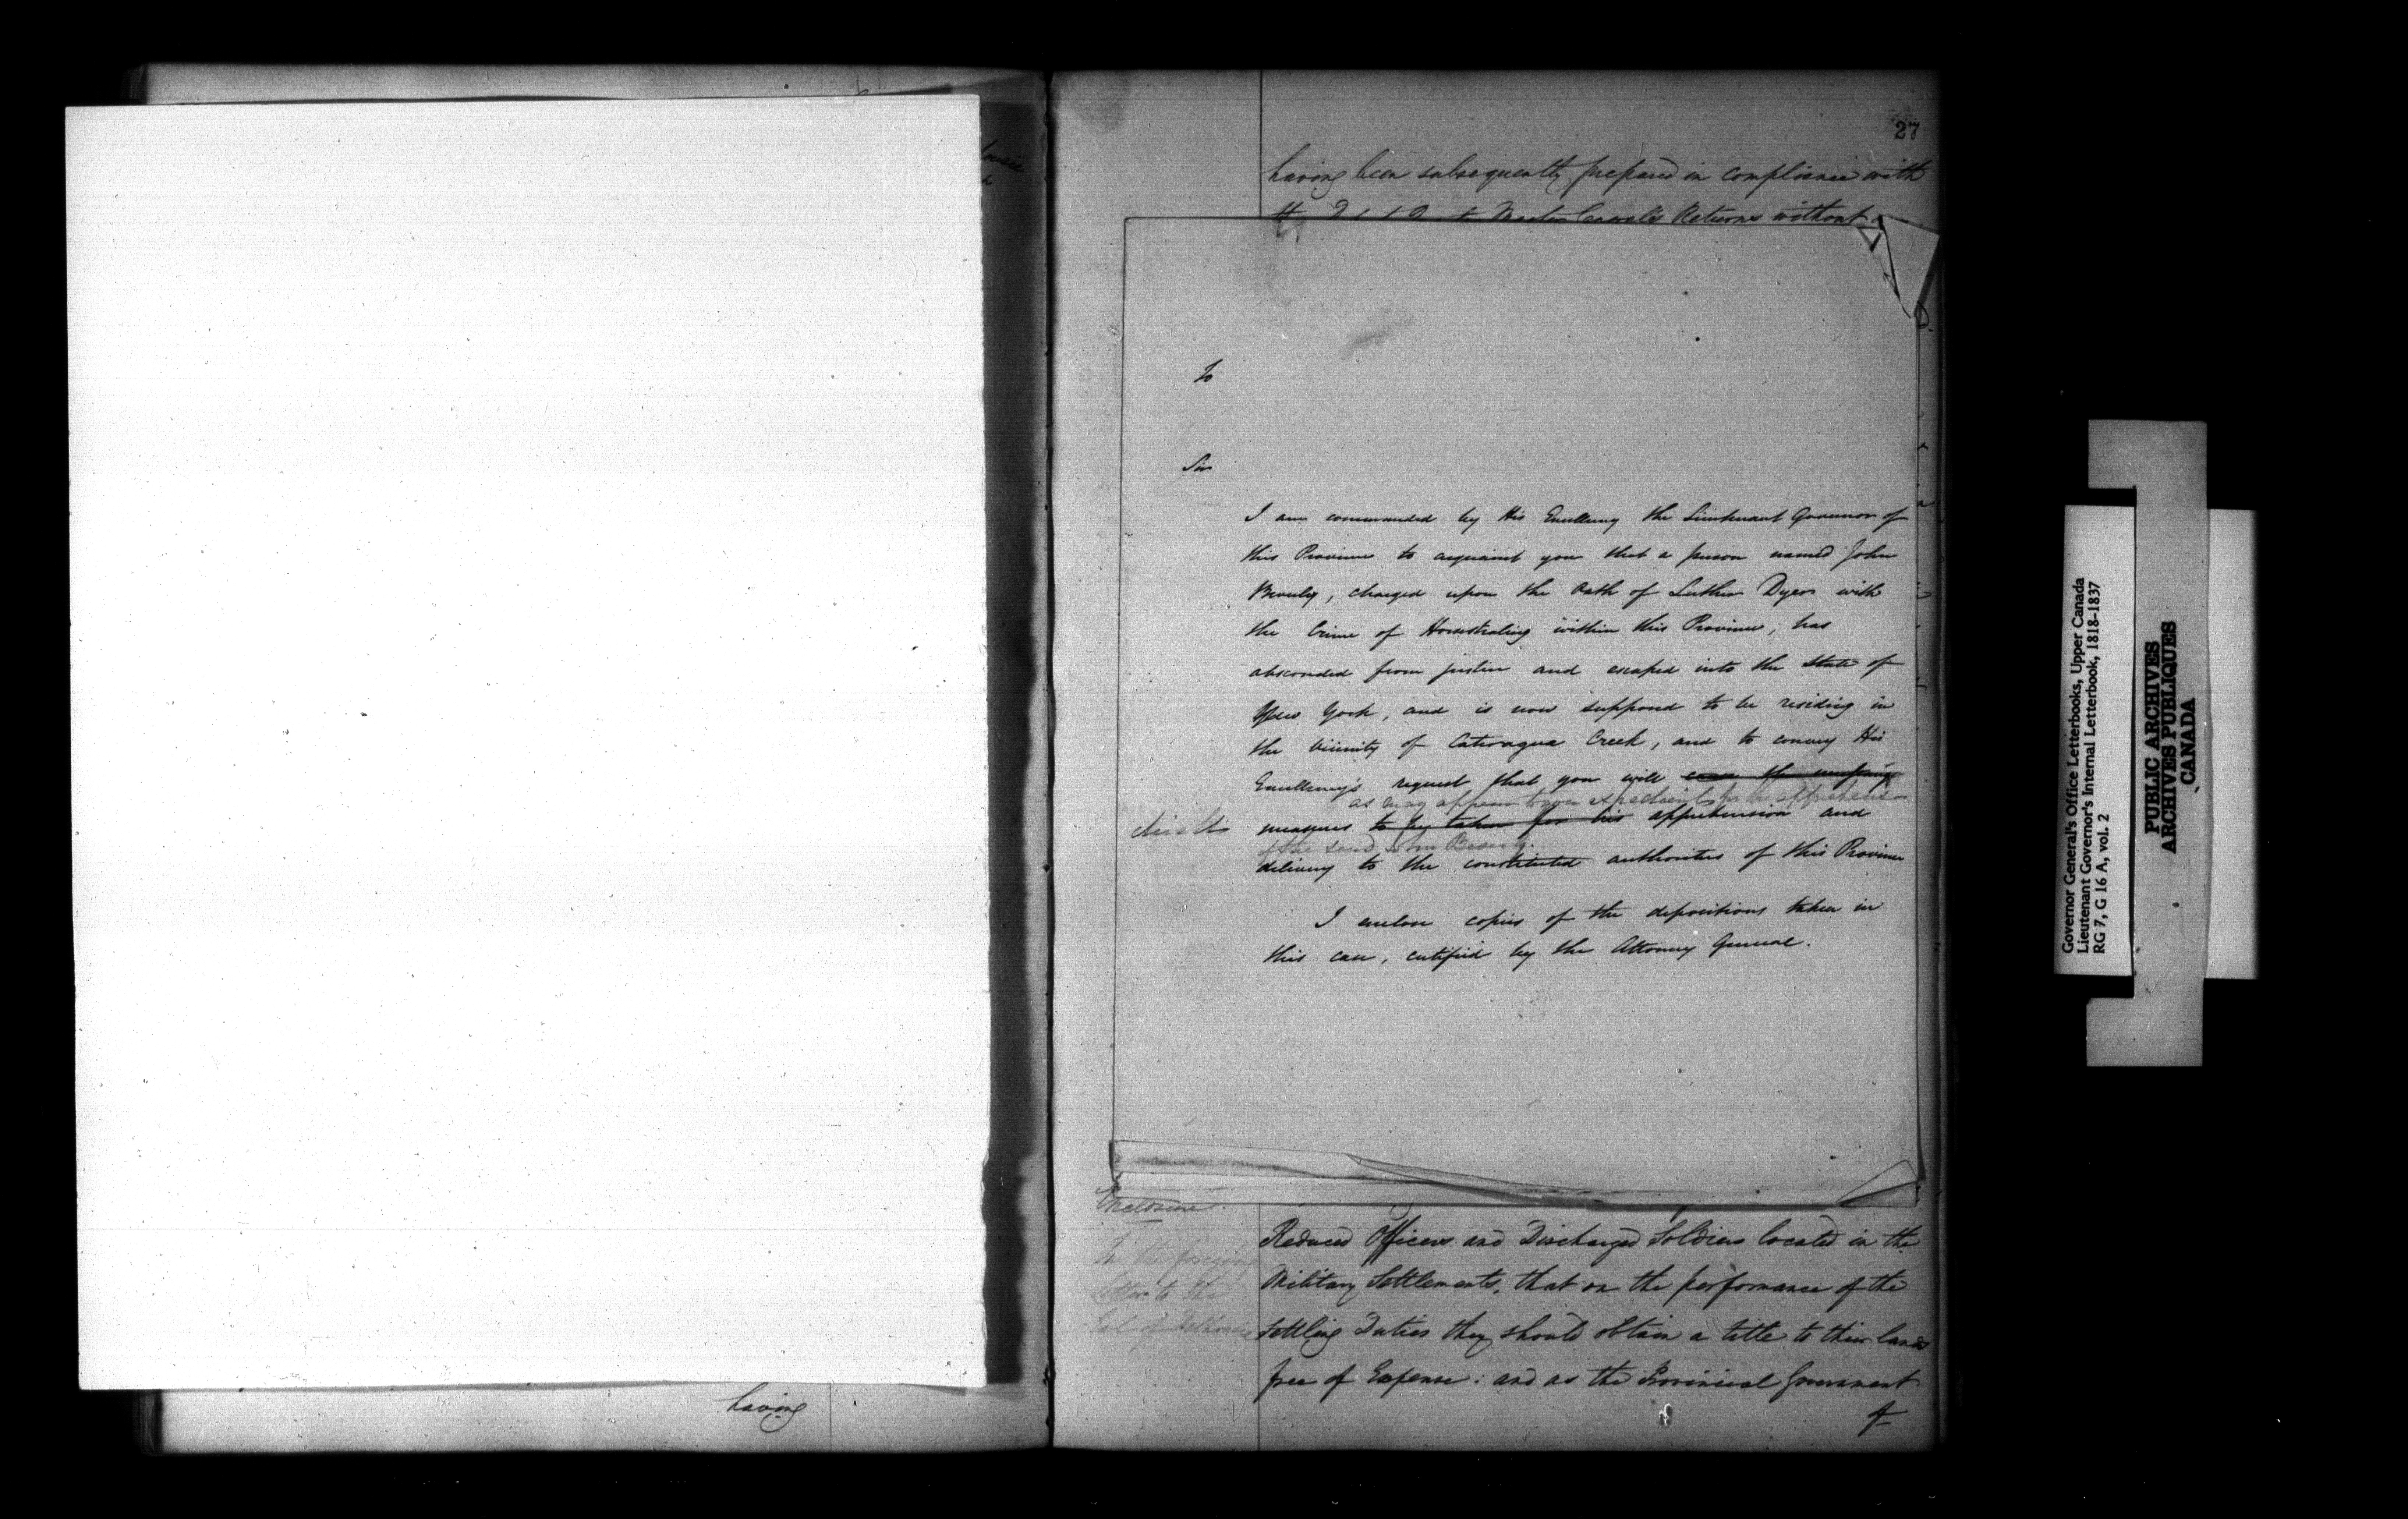 having
27
having been subsequently prepared in compliance with
Returns without
To
Sir
I am commanded by His Excellency the Lieutenant Governor of
this Province to acquaint you that a person named John
Beverly, charged upon the Oath of Luther Dyer with
the Crime of Horsestealing within this Province, has
absconded from justice and escaped into the State of
New York, and is now supposed to be residing in
the Vicinity of Catteragua Creek, and to convey His
Excellency's request that you will cause the necessary
as may appear to you expedient for the apprehension
measures to be taken for his apprehension and
of the said John Beverly.
delivery to the constituted authorities of this Province
I enclose copies of the depositions taken in
this case, certified by the Attorney General.
Enclosure.
In the foregoing
Letter to the
Earl of Dalhousie
Reduced Officers and Discharged Soldiers located in the
Military Settlements, that on the performance of the
Settling Duties they should obtain a title to their lands
free of Expense: and as the Provincial Government
Governor General's Office Letterbooks, Upper Canada
Lieutenant Governor's Internal Letterbook, 1818-1837
RG 7, G 16 A, vol. 2
PUBLIC ARCHIVES
ARCHIVES PUBLIQUES
CANADA